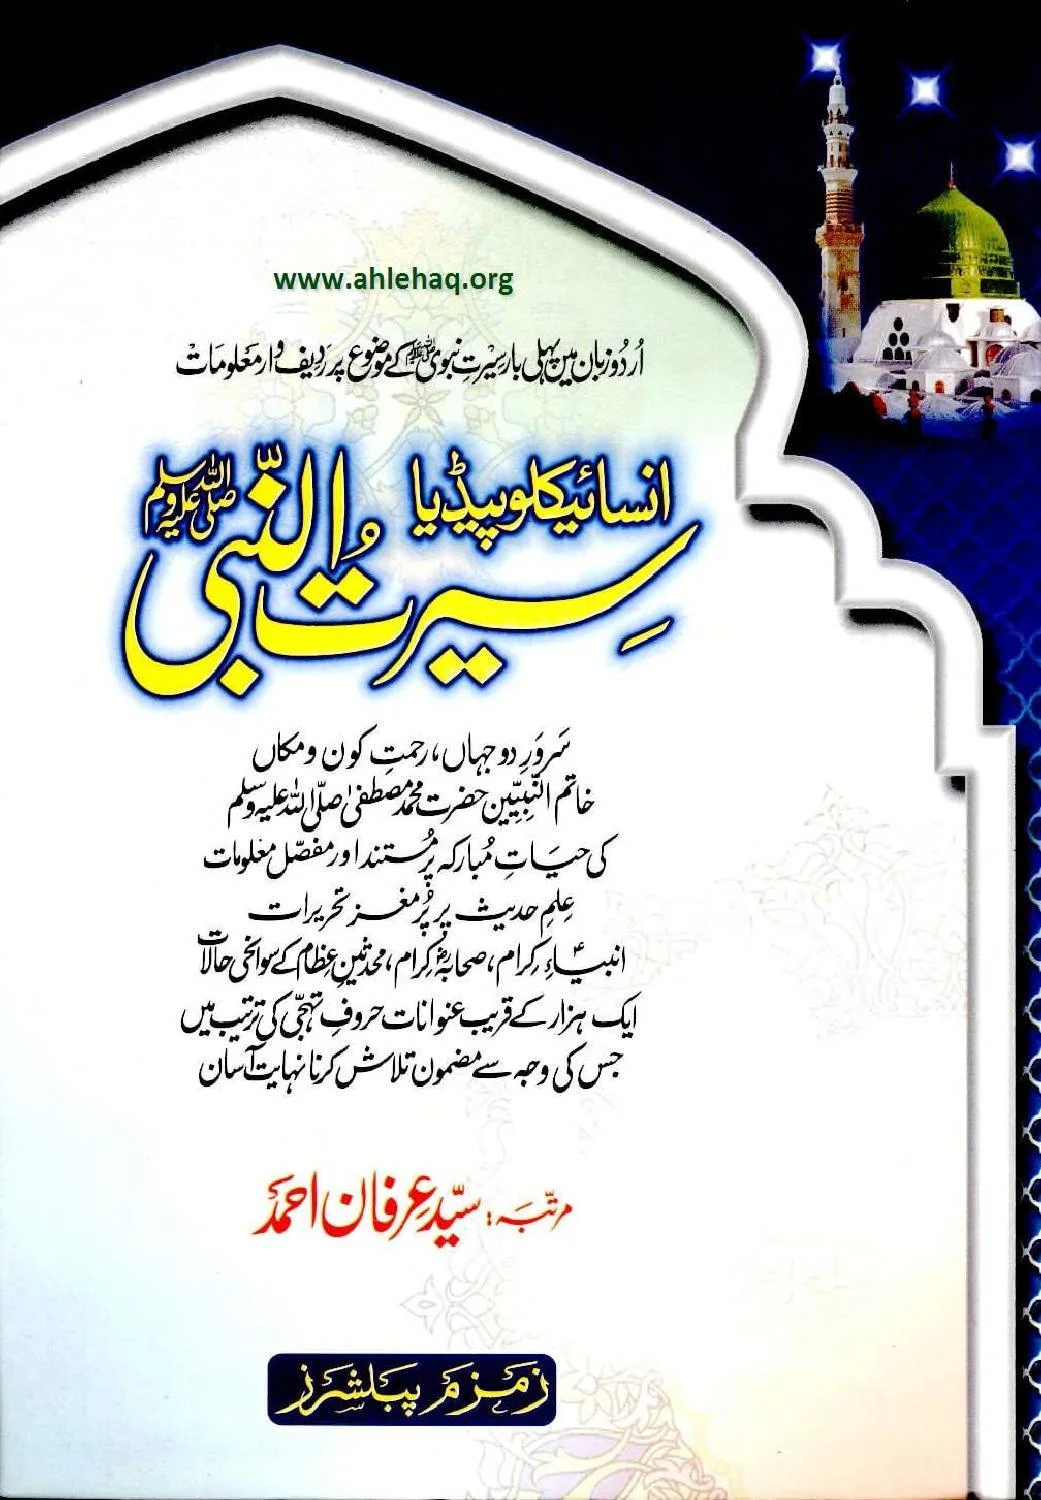 www.ahlehaq.org
اُردُو زبان میں پہلی بار سیرتِ نبوی ﷺ کے موضوع پر ردیف وار معلومات
انسائیکلوپیڈیا
سِیرتُ النّبی صلی اللہ علیہ وسلم
سَروَرِ دو جہاں، رحمتِ کون و مکاں
خاتم النّبیّین حضرت محمد مصطفیٰ صلی اللہ علیہ وسلم
کی حیاتِ مُبارکہ پر مُستند اور مفصّل معلومات
عِلمِ حدیث پر پُر مغز تحریرات
انبیاءِ کرام، صحابہؓ کرام، محدثینِ عِظام کے سوانحی حالات
ایک ہزار کے قریب عنوانات حروفِ تہجّی کی ترتیب میں
جس کی وجہ سے مضمون تلاش کرنا نہایت آسان
مرتّبہ: سیّد عِرفان احمد
زمزم پبلشرز